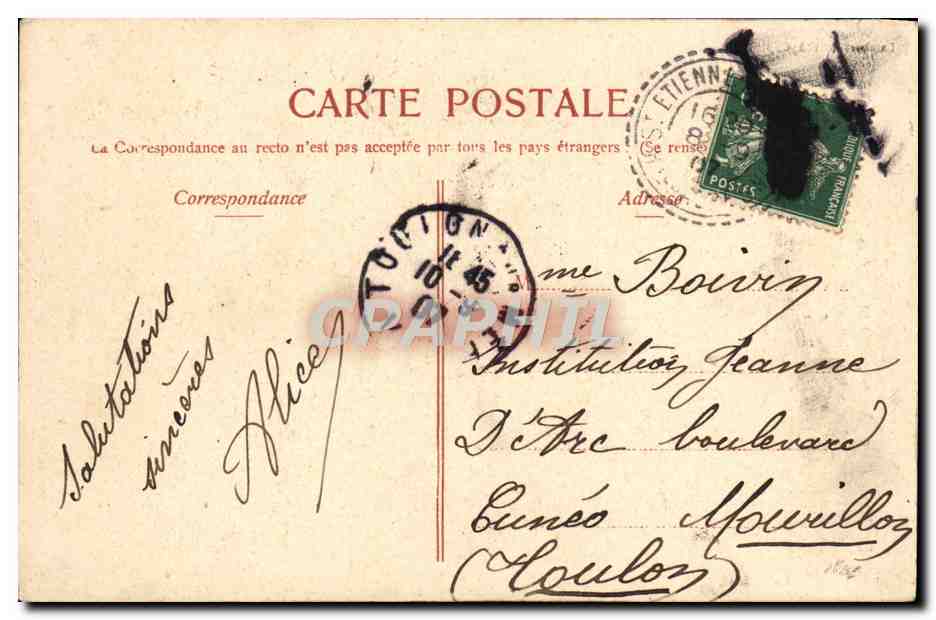 CARTE POSTALE
La Correspondance au recto n'est pas acceptée par tous les pays étrangers (Se rense
Correspondance
Adresse
ST ETIENN
POSTES
FRANÇAISE
TOUIGN
11 45
10 -8
CPARHIL
Mme Boivin
Institution Jeanne
D'Arc boulevard
Cunéo Mourillon
(Toulon)
Salutations
sincères
Alice